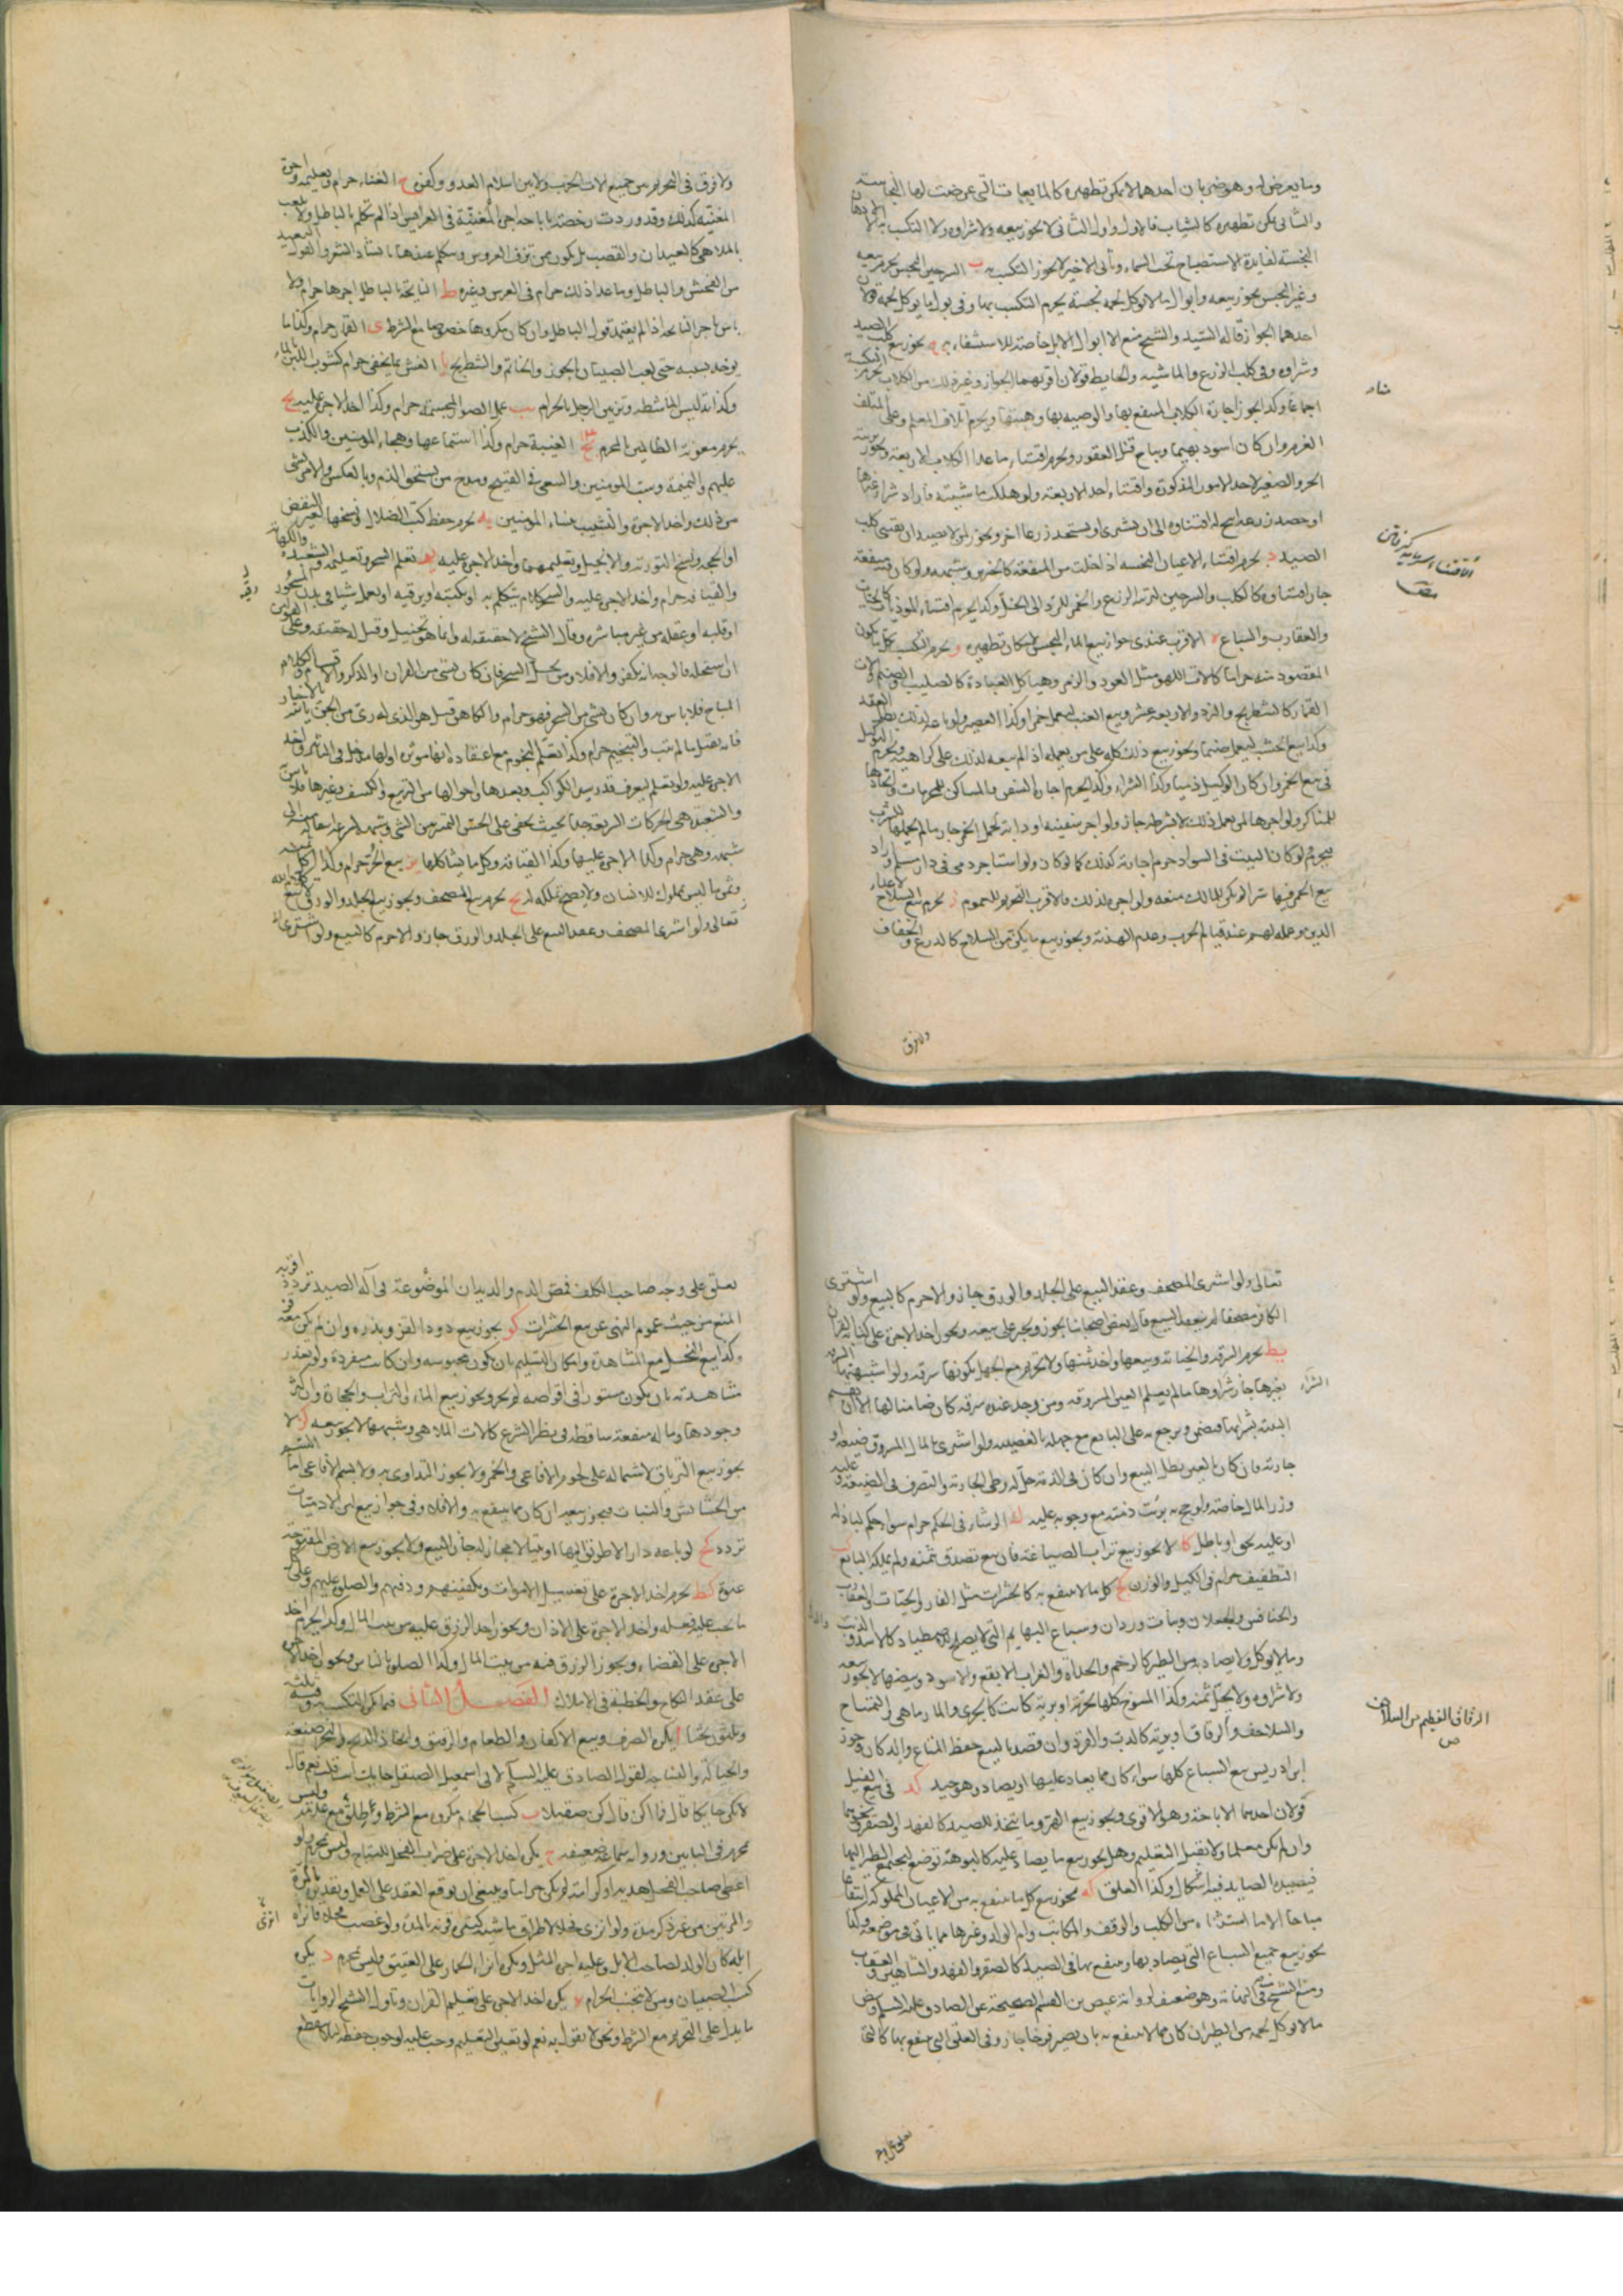 وما يعرض له وهو ضربان احدهما لا يمكن تطهيره كالمايعات التي عرضت لها النجاسة
والثاني يمكن تطهيره كالثياب فالاول واول الثاني لا يجوز بيعه ولا شراوه ولا التكسب به الا الادهان
النجسة لفايدة الاستصباح تحت السماء وثاني الاخير لا يجوز التكسب به ب السرجين النجس يحرم بيعه
وغير النجس يجوز بيعه وابوال ما لا يوكل لحمه نجسة يحرم التكسب بها وفي بول ما يوكل لحمه قولان
احدهما الجواز قاله السيد والشيخ منع الا ابوال الابل خاصة للاستشفاء به ج يجوز بيع كلب الصيد
وشراوه وفي كلب الزرع والماشية والحايط قولان اقربهما الجواز وغير ذلك من الكلاب يحرم التكسب به
اجماعا وكذا يجوز اجارة الكلاب المنتفع بها والوصية بها وهبتها ويحرم اتلاف المعلم وعلى المتلف
الغرم وان كان اسود بهيما ويباح قتل العقور ويحرم اقتناء ما عدا الكلاب الاربعة ويجوز تربية
الجرو الصغير لاحد الامور المذكورة واقتناء احد الاربعة ولو هلكت ماشيته فاراد شراء غيرها
او حصد زرعه ابيح له اقتناوه الى ان يشتري او يستجد زرعا اخر ويجوز لمن لا يصيد ان يقتني كلب
الصيد د يحرم اقتناء الاعيان النجسة اذا خلت من المنفعة كالخنزير وشبهه ولو كان فيه منفعة
جاز اقتناوه كالكلب والسرجين لتربية الزرع والخمر للرد الى الخل وكذا يحرم اقتناء الموذيات كالحيات
والعقارب والسباع ه الاقرب عندي جواز بيع الماء النجس لامكان تطهيره و يحرم التكسب بكل ما يكون
المقصود منه حراما كآلات اللهو مثل العود والزمر وهياكل العبادة كالصليب والصنم وآلات
القمار كالشطرنج والنرد والاربعة عشر وبيع العنب ليعمل خمرا وكذا العصير ولو باعه لذلك بطل العقد
وكذا بيع الخشب ليعمل صنما ويجوز بيع ذلك كله على من يعمله اذا لم يبعه لذلك على كراهية ويحرم التوكيل
في بيع الخمر وان كان الوكيل ذميا وكذا الشراء وكذا يحرم اجارة السفن والمساكن للمحرمات واتخاذها
للمناكر ولو اجرها لمن يعمل ذلك لا بشرطه جاز ولو اجر سفينة او دابة لحمل الخمر جاز ما لم يحملها للشرب
فيحرم لو كان البيت في السواد حرم اجارته كذلك كما لو كان ولو استاجر ذمي في دار مسلم واراد
بيع الخمر فيها سرا لم يكن للمالك منعه ولو اجره لذلك فالاقرب التحريم للعموم ز يحرم بيع السلاح لاعداء
الدين وعمله لهم عند قيام الحرب وعدم الهدنة ويجوز بيع ما يكن من السلاح كالدرع والخفاف
ولا فرق
ولا فرق في التحريم من جميع آلات الحرب ولا بين اسلام العدو وكفره ح الغناء حرام وتعليمه واجرة
المغنية كذلك وقد وردت رخصة باباحة اجر المغنية في العرايس اذا لم تتكلم بالباطل ولا تلعب
بالملاهي كالعيدان والقصب بل يكون ممن تزف العروس وتتكلم عندها بانشاد الشعر والقول البعيد
من الفحش والباطل وما عدا ذلك حرام في العرس وغيره ط النايحة بالباطل اجرها حرام ولا
باس باجر النايحة اذا لم يعتمد قول الباطل وان كان مكروها خصوصا مع الشرط ي القمار حرام وكذا ما
يوخذ بسببه حتى لعب الصبيان بالجوز والخاتم والشطرنج يا الغش بما يخفى حرام كشوب اللبن بالماء
وكذا تدليس الماشطة وتزيين الرجل بالحرام يب عمل الصور المجسمة حرام وكذا اخذ الاجر عليه يج
يحرم معونة الظالمين بالمحرم الغيبة حرام وكذا استماعها وهجاء المومنين والكذب
عليهم والنميمة وسب المومنين والسعي في القبيح ومدح من يستحق الذم وبالعكس والامر بشيء
من ذلك واخذ الاجرة والتشبيب بنساء المومنين يه يحرم حفظ كتب الضلال ونسخها لغير النقض
او الحجة ونسخ التورية والانجيل وتعليمهما واخذ الاجر عليه يو تعلم السحر وتعليمه والشعبذة والكهانة
والقيافة حرام واخذ الاجر عليه والسحر كلام يتكلم به او يكتبه او رقية او يعمل شيا في بدن المسحور
او قلبه او عقله من غير مباشرة وقال الشيخ لا حقيقة له وانما هو تخييل وقيل له حقيقة وعلى القولين
ان استحله فالوجه انه يكفر والا فلا ومن يحل السحر فان كان بشيء من القران او الذكر والاقسام والكلام
المباح فلا باس به وان كان بشيء من السحر فهو حرام والكاهن قيل هو الذي له رئي من الجن ياتيه بالاخبار
فانه يقتل ما لم يتب والتنجيم حرام وكذا تعلم النجوم مع اعتقاد انها موثرة او لها مدخل في التاثير واخذ
الاجر عليه ولو تعلم ليعرف قدر سير الكواكب وبعدها واحوالها من التربيع والكسف وغيرها فلا باس
والشعبذة هي الحركات السريعة جدا بحيث يخفى على الحس الفرق بين الشيء وشبهه لسرعة انتقاله منه الى
شبهه وهي حرام وكذا الاجر عليها وكذا القيافة وكل ما يشاكلها يز بيع الحر حرام وكذا اكل ثمنه
وثمن ما ليس بمملوك للانسان ولا يصح تملكه له يح يحرم بيع المصحف ويجوز بيع الجلد والورق لا كلام الله
تعالى ولو اشترى المصحف وعقد البيع على الجلد والورق جاز والا حرم كالبيع ولو اشترى
تعالى ولو اشترى المصحف وعقد البيع على الجلد والورق جاز والا حرم كالبيع ولو اشترى
الكافر مصحفا لم ينعقد البيع وقال بعض اصحابنا يجوز ويجبر على بيعه ويجوز اخذ الاجرة على كتابة القران
يط يحرم السرقة والخيانة وبيعها واخذ ثمنها ولا تحريم مع الجهل بكونها سرقة ولو اشتبهت السرقة
بغيرها جاز شراوها ما لم يعلم العين المسروقة ومن وجد عنده سرقة كان ضامنا لها الا ان يقيم
البينة بشرائها فيضمن ويرجع به على البايع مع جهله بالغصبية ولو اشترى بالمال المسروق ضيعة او
جارية فان كان بالعين بطل البيع وان كان في الذمة حل له وطي الجارية والتصرف في الضيعة وعليه
وزر المال خاصة ولو حج به برئت ذمته مع وجوبه عليه ك الرشا في الحكم حرام سواء حكم لباذله
او عليه بحق او باطل كا لا يجوز بيع تراب الصياغة فان بيع تصدق بثمنه ولم يملكه البايع كب
التطفيف حرام في الكيل والوزن كج كل ما لا ينتفع به كالحشرات مثل الفار والحيات والعقارب
والخنافس والجعلان وبنات وردان وسباع البهايم التي لا يصلح للاصطياد كالاسد والذيب
وما لا يوكل ولا يصاد به من الطير كالرخم والحداة والغراب الابقع والاسود وبيضها لا يجوز بيعه
ولا شراوه ولا يحل ثمنه وكذا المسوخ كلها بحرية او برية كانت كالجري والمارماهي والتمساح
والسلاحف والرقاق او برية كالدب والقرد وان قصد بالبيع حفظ المتاع والدكان وجوز
ابن ادريس بيع السباع كلها سواء كان مما يصاد عليها او يصاد وهو جيد كد في بيع الفيل
قولان احدهما الاباحة وهو الاقوى ويجوز بيع الهر وما يتخذ للصيد كالفهد والصقر ونحوهما
وان لم يكن معلما ولا يقبل التعليم وهل يجوز بيع ما يصاد عليه كالبومة توضع ليجتمع الطير اليها
فيصيده الصايد فيه اشكال وكذا العلق كه يجوز بيع كل ما ينتفع به من الاعيان المملوكة انتفاعا
مباحا الا ما استثناه من الكلب والوقف والمكاتب وام الولد وغيرها مما ياتي في موضعه ولهذا
يجوز بيع جميع السباع التي يصاد بها وينتفع بها في الصيد كالصقر والفهد والشاهين والعقاب
ومنع الشيخ في النهاية وهو ضعيف لرواية عيص بن القسم الصحيحة عن الصادق عليه السلام وبيض
ما لا يوكل لحمه من الطير ان كان مما لا ينتفع به بان يصير فرخا جاز وفي العلق التي ينتفع بها كالتي
تعلق على وجه
تعلق على وجه صاحب الكلف فمص الدم والديدان الموضوعة في آلة الصيد تردد اقربه
المنع من حيث عموم النهي عن بيع الحشرات كو يجوز بيع دود القز وبذره وان لم يكن معه قز
وكذا بيع النحل مع المشاهدة وامكان التسليم بان يكون محبوسة وان كانت منفردة ولو تعذر
مشاهدته بان يكون مستورا في اقراصه لم يجز ويجوز بيع الماء والتراب والحجارة وان كثر
وجودها وما له منفعة ساقطة في نظر الشرع كآلات الملاهي وشبهها لا يجوز بيعه كز لا
يجوز بيع الترياق لاشتماله على لحوم الافاعي والخمر ولا يجوز التداوي به ولا بسم الافاعي اما السم
من الحشايش والنبات فيجوز بيعه ان كان مما ينتفع به والا فلا وفي جواز بيع لبن الادميات
تردد كح لو باعه دارا لا طريق اليها او بيتا لا مجاز له جاز البيع ولا يجوز بيع الارض المفتوحة
عنوة كط يحرم اخذ الاجرة على تغسيل الاموات وتكفينهم ودفنهم والصلوة عليهم وعلى كل
ما يجب عليه فعله واخذ الاجر على الاذان ويجوز اخذ الرزق عليه من بيت المال وكذا يحرم اخذ
الاجر على القضاء ويجوز الرزق فيه من بيت المال وكذا الصلوة بالناس ويجوز اخذ الاجر
على عقد النكاح والخطبة في الاملاك الفصل الثاني فيما يكره التكسب به وفيه ثلثة
وثلثون بحثا ا يكره الصرف وبيع الاكفان والطعام والرقيق واتخاذ الذبح والنحر صنعة
والحياكة والنساجة لقول الصادق عليه السلام لابي اسمعيل الصيقل احايك انت قلت نعم قال
لا تكن حايكا قال فما اكون قال كن صيقلا ب كسب الحجام مكروه مع الشرط ومع عدمه وليس
بمحرم في البابين ورواية سماعة ضعيفة ج يكره اخذ الاجرة على ضراب الفحل للنتاج وليس محرم ولو
اعطى صاحب الفحل هدية او كرامة لم يكن حراما وينبغي ان يوقع العقد على العمل ويقدر بالمرة
والمرتين من غير كراهة ولو انزى فحله لاطراق ماشية كثيرة قدره بالمدة ولو غصب فحلا فانزاه
ابله كان الولد لصاحب الابل وعليه اجر المثل ويكره انزاء الحمار على العتيق وليس بمحرم د يكره
كسب الصبيان ومن لا يجتنب الحرام ه يكره اخذ الاجر على تعليم القران وتاول الشيخ الروايات
بما يدل على التحريم مع الشرط ونحن لا نقول به نعم لو تعين التعليم وجب عليه لوجوب حفظه لئلا ينقطع